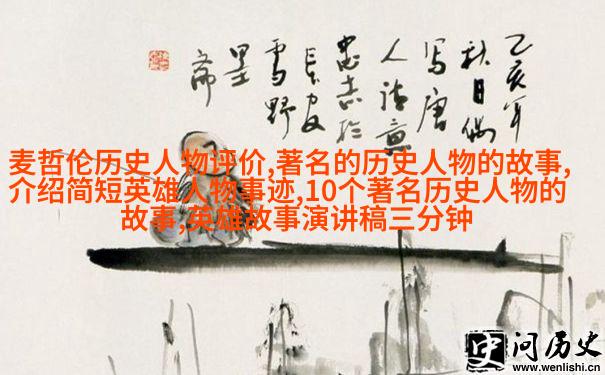 乙亥年
秋日偶
写唐
人诗意
忠志於
雪野
墨
斋
麦哲伦历史人物评价,著名的历史人物的故事,
介绍简短英雄人物事迹,10个著名历史人物的
故事,英雄故事演讲稿三分钟
史问历史
www.wenlishi.cn